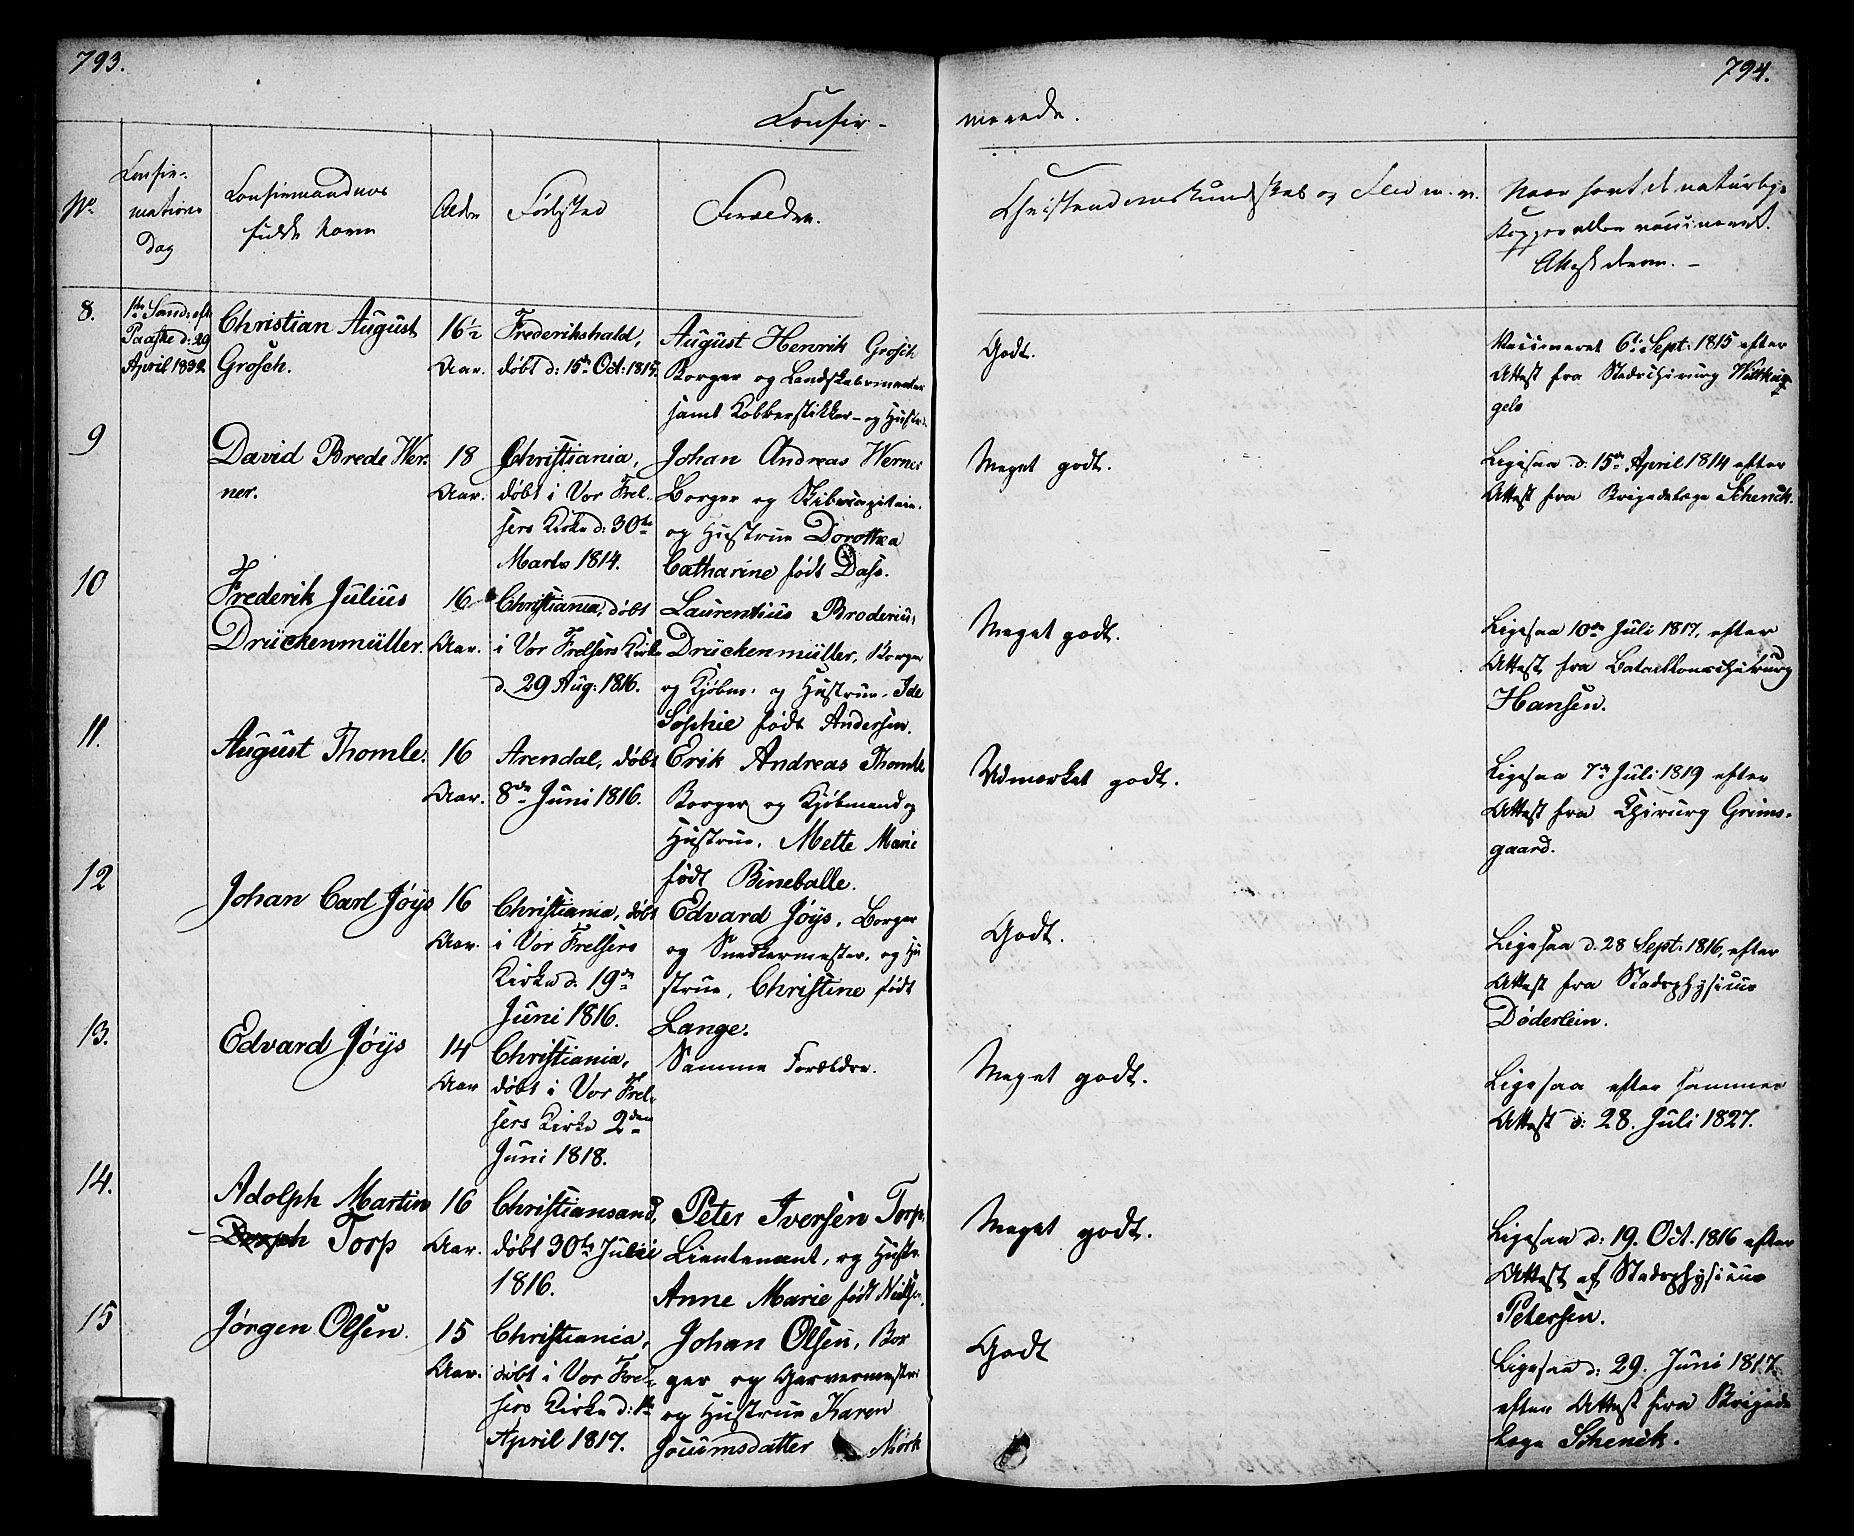 793.
794.
Confir-
merede.
No
Confir-
mations
Dag
Confirmandens
fulde Navn
Alder
Fødested
Forældre.
Christendomskundskab og Flid m. v.
Naar havt de naturlige
Kopper eller vaccineret.
Attest derom. -
8.
1ste Sønd: eft.
Paaske d: 29
April 1832
Christian August
Grosch.
16½
Aar.
Frederikshald,
døbt d: 15de Oct: 1815.
August Henrik Grosch
Borger og Landskabsmaaler
samt Kobberstikker- og Hustru
Godt.
Vaccineret 6te Sept: 1815 efter
Attest fra Stadschirurg
9
David Brede Wer-
ner.
18
Aar.
Christiania,
døbt i Vor Frel-
sers Kirke d: 30te
Marts 1814.
Johan Andreas Werner
Borger og Skibscapitein.
og Hustrue Dorothea
Catharine født Dass.
Meget godt.
Ligesaa d: 15de April 1814 efter
Attest fra Brigadelæge Schenck.
10
Frederik Julius
Drückenmüller.
16
Aar.
Christiania, døbt
i Vor Frelsers Kirke
d. 29 Aug: 1816.
Laurentius Broderius
Drückenmüller, Borger
og Kjøbm: og Hustrue, Ide
Sophie født Andersen.
Meget godt.
Ligesaa 10de Juli 1817, efter
Attest fra Bataillonschirurg
Hansen.
11.
August Thomle.
16
Aar.
Arendal, døbt
8de Juni 1816.
Erik Andreas Thomle
Borger og Kjøbmand og
Hustrue, Mette Marie
født Bineballe.
Udmærket godt.
Ligesaa 7de Juli 1819 efter
Attest fra Chirurg Grims-
gaard.
12
Johan Carl Jøys
16
Aar.
Christiania, døbt
i Vor Frelsers
Kirke d. 19de
Juni 1816.
Edvard Jøys, Borger
og Snedkermester, og Hu
strue, Christine født
Lange.
Godt.
Ligesaa d. 28 Sept: 1816, efter
Attest fra Stadsphysicus
Døderlein.
13.
Edvard Jøys
14
Aar
Christiania,
døbt i Vor Frel-
sers Kirke 2den
Juni 1818.
Samme Forældre.
Meget godt.
Ligesaa efter sammes
Attest d: 28. Juli 1827.
14.
Adolph Martin
Torp
16
Aar.
Christiansand,
døbt 30te Julii
1816.
Peter Iversen Torp,
Lieutenant, og Hustr.
Anne Marie født Nielsen.
Meget godt.
Ligesaa d: 19. Oct. 1816 efter
Attest af Stadsphysicus
Petersen.
15
Jørgen Olsen.
15
Aar.
Christiania,
døbt i Vor Frel-
sers Kirke d: 1ste
April 1817.
Johan Olsen, Bor
ger og Garvermester
og Hustrue Karen
Joiumsdatter Mørk
Godt
Ligesaa d: 29. Juni 1817
efter Attest fra Brigade
Læge Schenck.